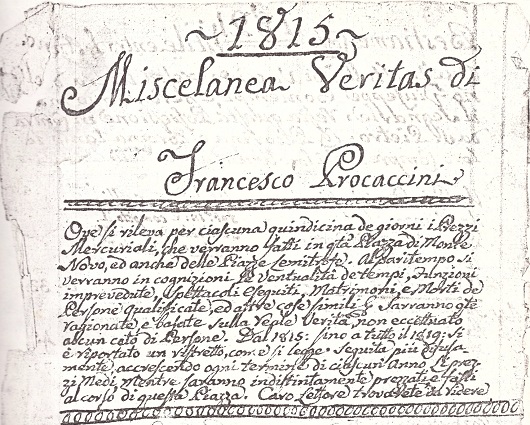 ~1815~
Miscelanea Veritas di
Francesco Procaccini
Ove si rileva per ciascuna quindicina de giorni i Prezzi
Mercuriali, che verranno fatti in qta Piazza di Monte
Novo, ed anche delle Piazze lemitrofe. Al pari tempo si
verranno in cognizioni le ventualità de tempi, Funzioni
imprevedute, Spettacoli eseguiti, Matrimoni, e Morti de
Persone qualificate, ed altre cose simili, e Sarranno qte
ragionate, e basate sulla Reale Verità, non eccettuato
alcun ceto di Persone. Dal 1815: fino a tutto il 1819: si
è riportato un ristretto, come si legge. Seguita più difusa
mente, accrescendo ogni termine di ciascun Anno, li prez
zi Medi, mentre saranno indistintamente prezzati e fatti
al corso di questa Piazza. Caro Lettore trovarete da ridere